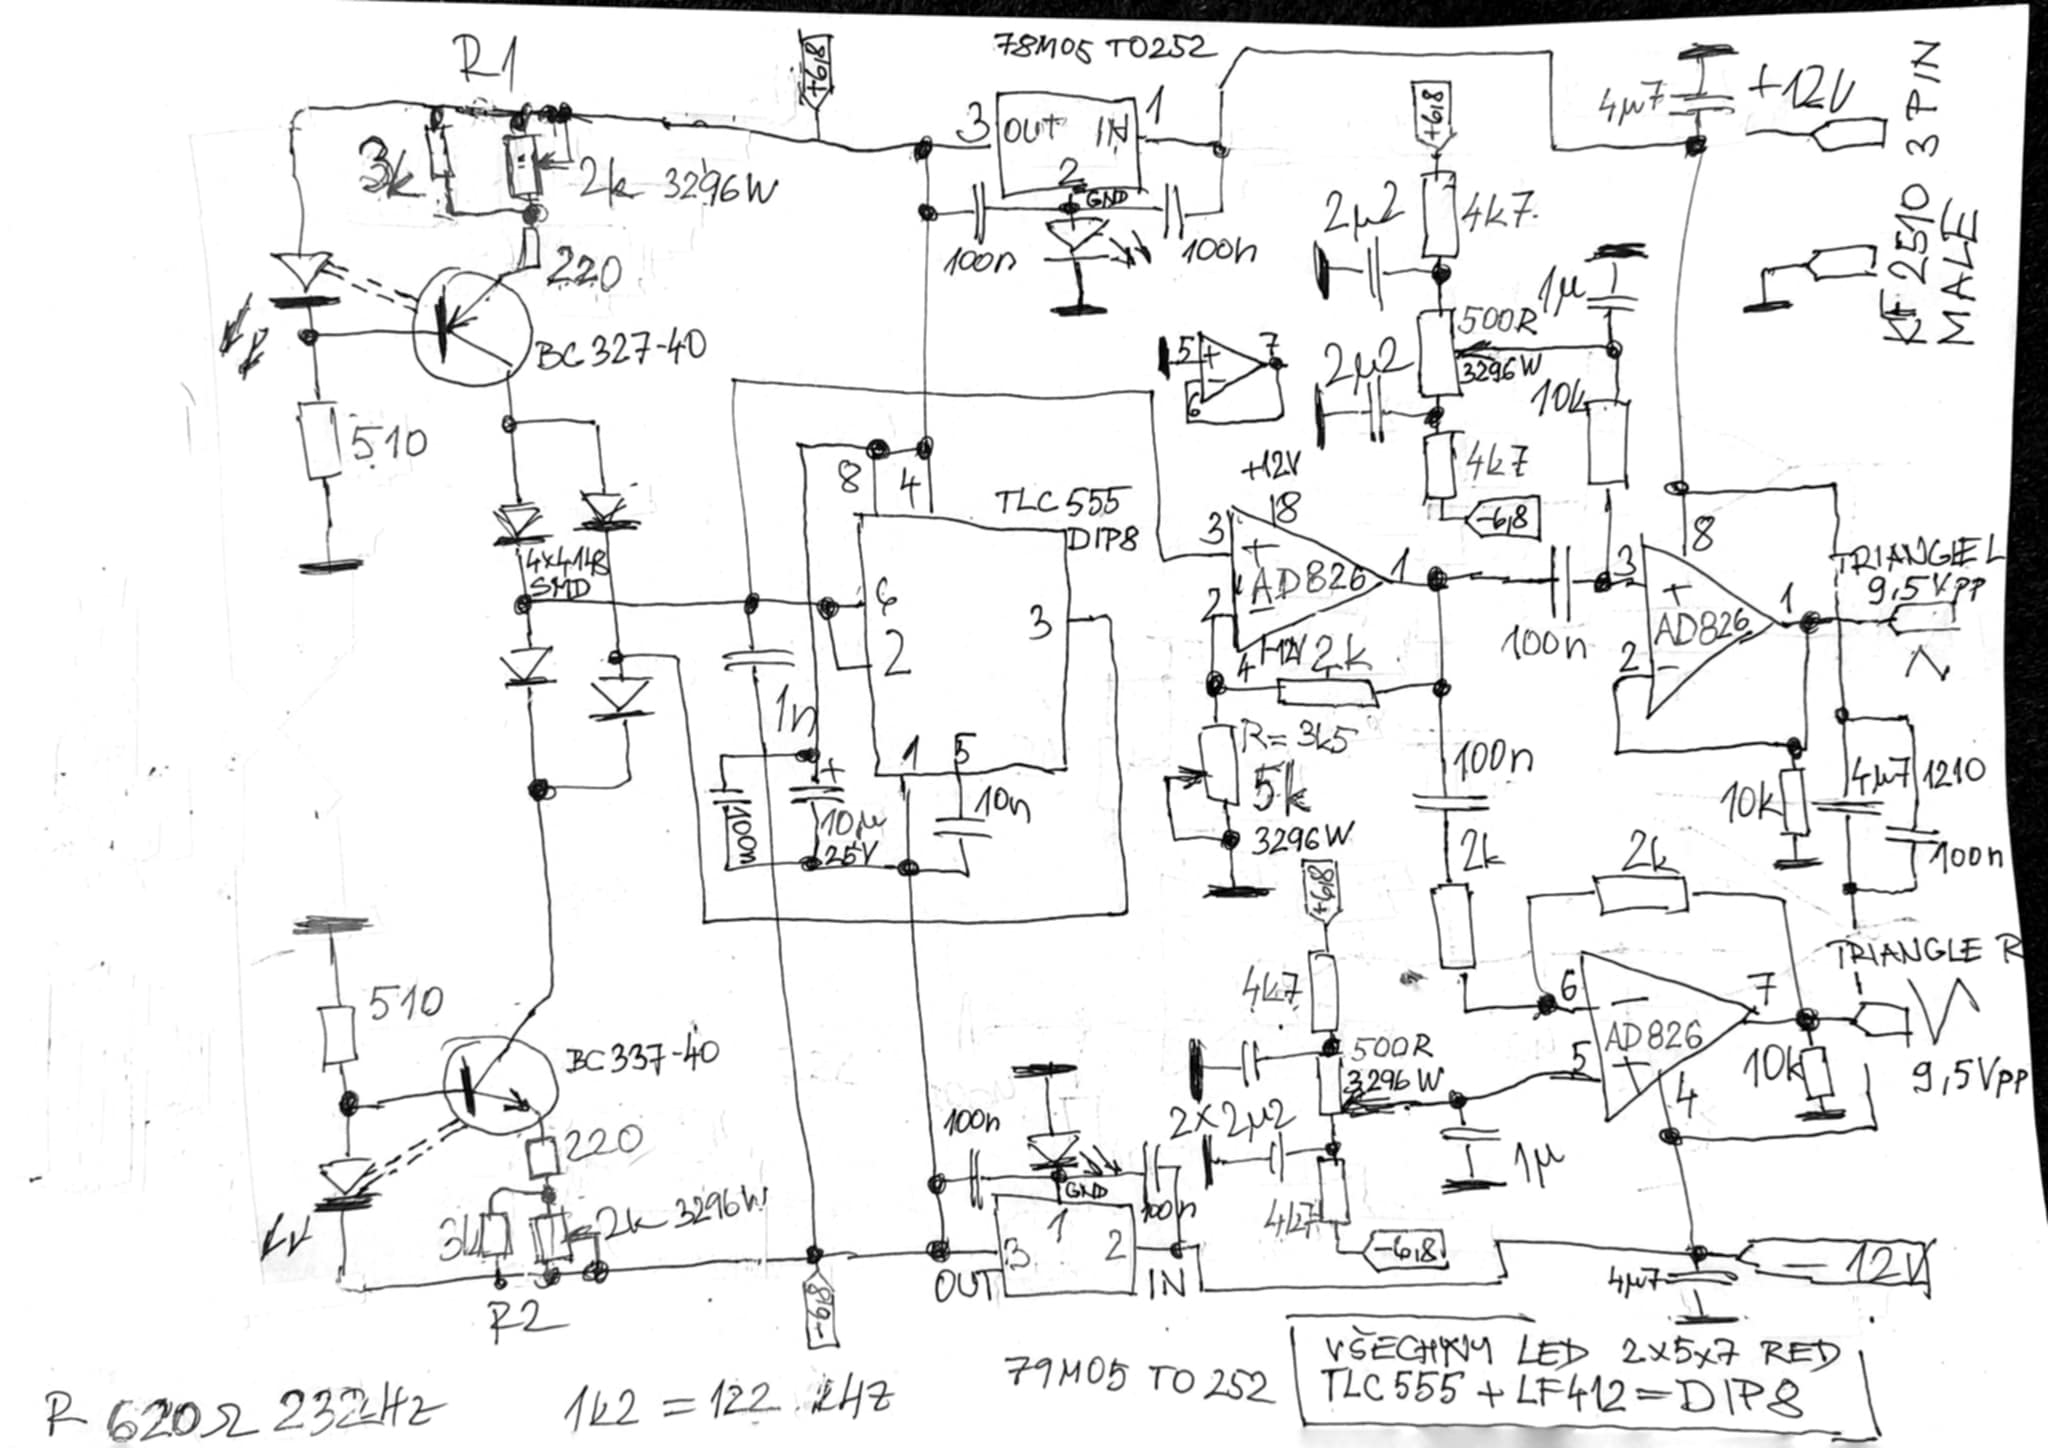 R1
+6,8
78M05 TO252
4µ7
+12V
KF2510 3 PIN
MALE
3k
2k 3296W
3 OUT IN 1
2
GND
100n
100n
+6,8
2µ2
4k7
220
BC327-40
1µ
500R
3296W
5
7
6
2µ2
10k
510
8
4
+12V
4k7
-6,8
TLC555
DIP8
4x4148
SMD
6
2
3
3
8
AD826
1
2
4
-12V
2k
100n
3
8
AD826
1
2
TRIANGLE L
9,5Vpp
1n
1
5
10n
R=3k5
5k
3296W
100n
10k
4µ7
1210
100n
100n
10µ
25V
+6,8
2k
2k
510
4k7
6
7
AD826
5
4
TRIANGLE R
9,5Vpp
10k
BC337-40
500R
3296W
2x2µ2
1µ
220
100n
GND
100n
3k
2k 3296W
4k7
-6,8
3
1
2
OUT
IN
-6,8
4µ7
- 12V
R2
79M05 TO252
VŠECHNY LED 2x5x7 RED
TLC555 + LF412 = DIP8
R 620Ω 232kHz
1k2 = 122 kHz